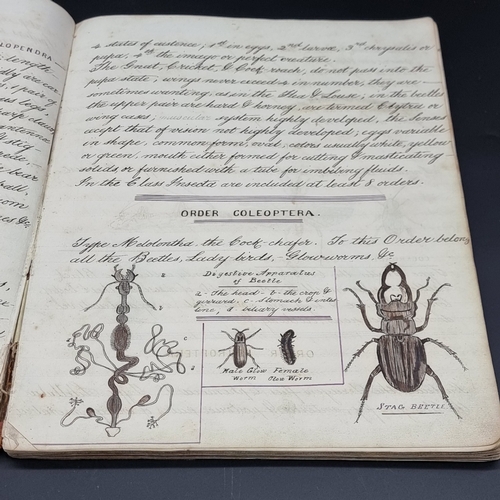 LOPENDRA
length
4 states of existence, 1st in eggs, 2nd larva, 3rd chrysalis or
pupa, 4th the imago or perfect creature.
The Gnat, Cricket & Cock-roach, do not pass into the
pupa state; wings never exceed 4 in number, they are
sometimes wanting, as in the Flea & Louse, in the beetles
the upper pair are hard & horney, are termed Elytra or
wing cases, muscular system highly developed, the senses
except that of vision not highly developed; eggs variable
in shape, common form, oval, colors usually white, yellow
or green, mouth either formed for cutting & masticating
solids or furnished with a tube for imbibing fluids.
In the Class Insecta are included at least 8 orders.
ORDER COLEOPTERA.
Type Melolontha the Cock-chafer. To this Order belong
all the Beetles, Lady birds, Glowworms, &c
Digestive Apparatus
of Beetle
a - The head - b - the crop &
gizzard, c - stomach & intes
tine, d biliary vessels.
Male Glow Female
Worm Glow Worm
STAG BEETLE